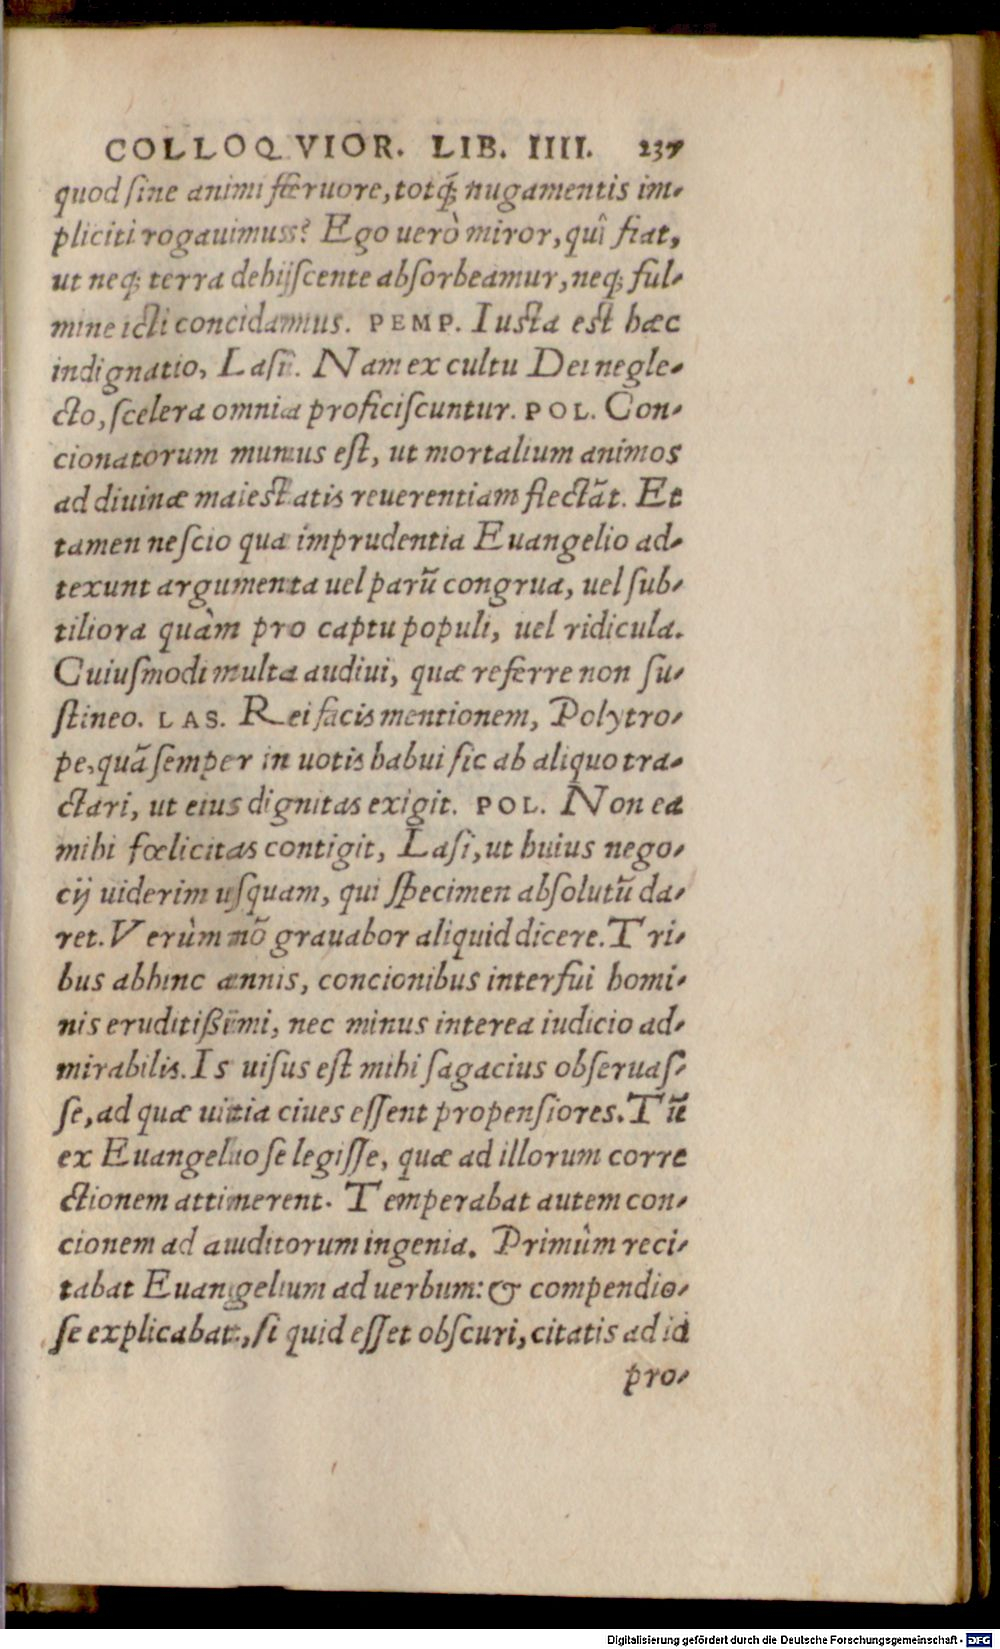 COLLOQVIOR. LIB. IIII. 237
quod ſine animi feruore, totq́; nugamentis im-
pliciti rogauimus? Ego uerò miror, quî fiat,
ut neq; terra dehijſcente abſorbeamur, neq; ful-
mine icti concidamus. PEMP. Iusta est hæc
indignatio, Laſi. Nam ex cultu Dei negle-
cto, ſcelera omnia proficiſcuntur. POL. Con-
cionatorum munus eſt, ut mortalium animos
ad diuinæ maiestatis reuerentiam flectãt. Et
tamen neſcio qua imprudentia Euangelio ad-
texunt argumenta uel parũ congrua, uel ſub-
tiliora quàm pro captu populi, uel ridicula.
Cuiuſmodi multa audiui, quæ referre non ſu-
ſtineo. LAS. Rei facis mentionem, Polytro-
pe, quã ſemper in uotis habui ſic ab aliquo tra-
ctari, ut eius dignitas exigit. POL. Non ea
mihi fœlicitas contigit, Laſi, ut huius nego-
cij uiderim uſquam, qui ſpecimen abſolutũ da-
ret. Verùm nõ grauabor aliquid dicere. Tri-
bus abhinc annis, concionibus interfui homi-
nis eruditißimi, nec minus interea iudicio ad-
mirabilis. Is uiſus eſt mihi ſagacius obſeruaſ-
ſe, ad quæ uitia ciues eſſent propenſiores. Tũ
ex Euangelio ſe legiſſe, quæ ad illorum corre
ctionem attinerent. Temperabat autem con-
cionem ad auditorum ingenia. Primûm reci-
tabat Euangelium ad uerbum: & compendio-
ſe explicabat, ſi quid eſſet obſcuri, citatis ad id
pro-
Digitalisierung gefördert durch die Deutsche Forschungsgemeinschaft - DFG